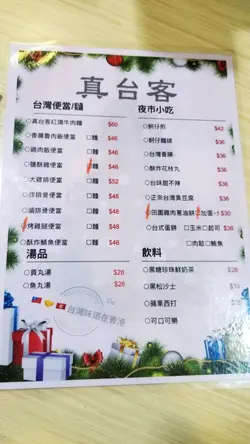 真台客
台灣便當/麵
○真台客紅燒牛肉麵 $60
○香腸魯肉飯便當 □麵 $46
○雞肉飯便當 □麵 $46
○鹽酥雞便當 □麵 $48
○大雞排便當 □麵 $52
○炸排骨便當 □麵 $48
○滷排骨便當 □麵 $48
○烤雞腿便當 □麵
○酥炸鯖魚便當 □麵 $46
湯品
○貢丸湯 $28
○魚丸湯 $28
夜市小吃
○蚵仔煎 $42
○蚵仔麵線 $36
○台灣香腸 $36
○酥炸花枝丸 $36
○台味甜不辣 $36
○正宗台灣臭豆腐 $36
○田園雞肉蔥油餅 加蛋+5 $30
○台式蛋餅 □玉米□起司 $30
□肉鬆□鮪魚
飲料
○黑糖珍珠鮮奶茶 $28
○黑松沙士 $15
○蘋果西打 $15
○可口可樂
台灣味道在香港